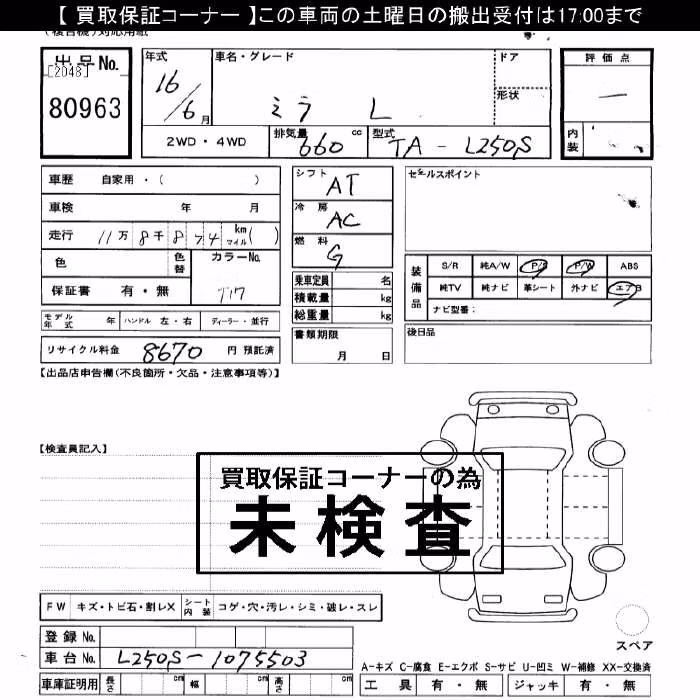 【 買取保証コーナー 】この車両の土曜日の搬出受付は17:00まで
出品No.
[2048]
80963
年式 車名・グレード ドア
16/6月 ミラ L 形状
2WD・4WD 排気量 660 cc 型式 TA-L250S
評価点
一
内装
車歴 自家用・( )
車検 年 月
走行 11万 8千 8 7 4 km マイル( )
色 色替 カラーNo.
保証書 有・無 T17
モデル年式 年 ハンドル 左・右 ディーラー・並行
リサイクル料金 8670 円 預託済
シフト AT
冷房 AC
燃料 G
乗車定員 名
積載量 kg
総重量 kg
書類期限
月 日
セールスポイント
装備品 S/R 純A/W P/S P/W ABS
純TV 純ナビ 革シート 外ナビ エアB
ナビ型番:
後日品
【出品店申告欄(不良箇所・欠品・注意事項等)】
【検査員記入】
買取保証コーナーの為
未検査
FW キズ・トビ石・割レX シート内装 コゲ・穴・汚レ・シミ・破レ・スレ
登録 No.
車台 No. L250S-1075503
車庫証明用 長さ cm 幅 cm 高さ cm
スペア
A-キズ C-腐食 E-エクボ S-サビ U-凹ミ W-補修 XX-交換済
工具 有・無 ジャッキ 有・無